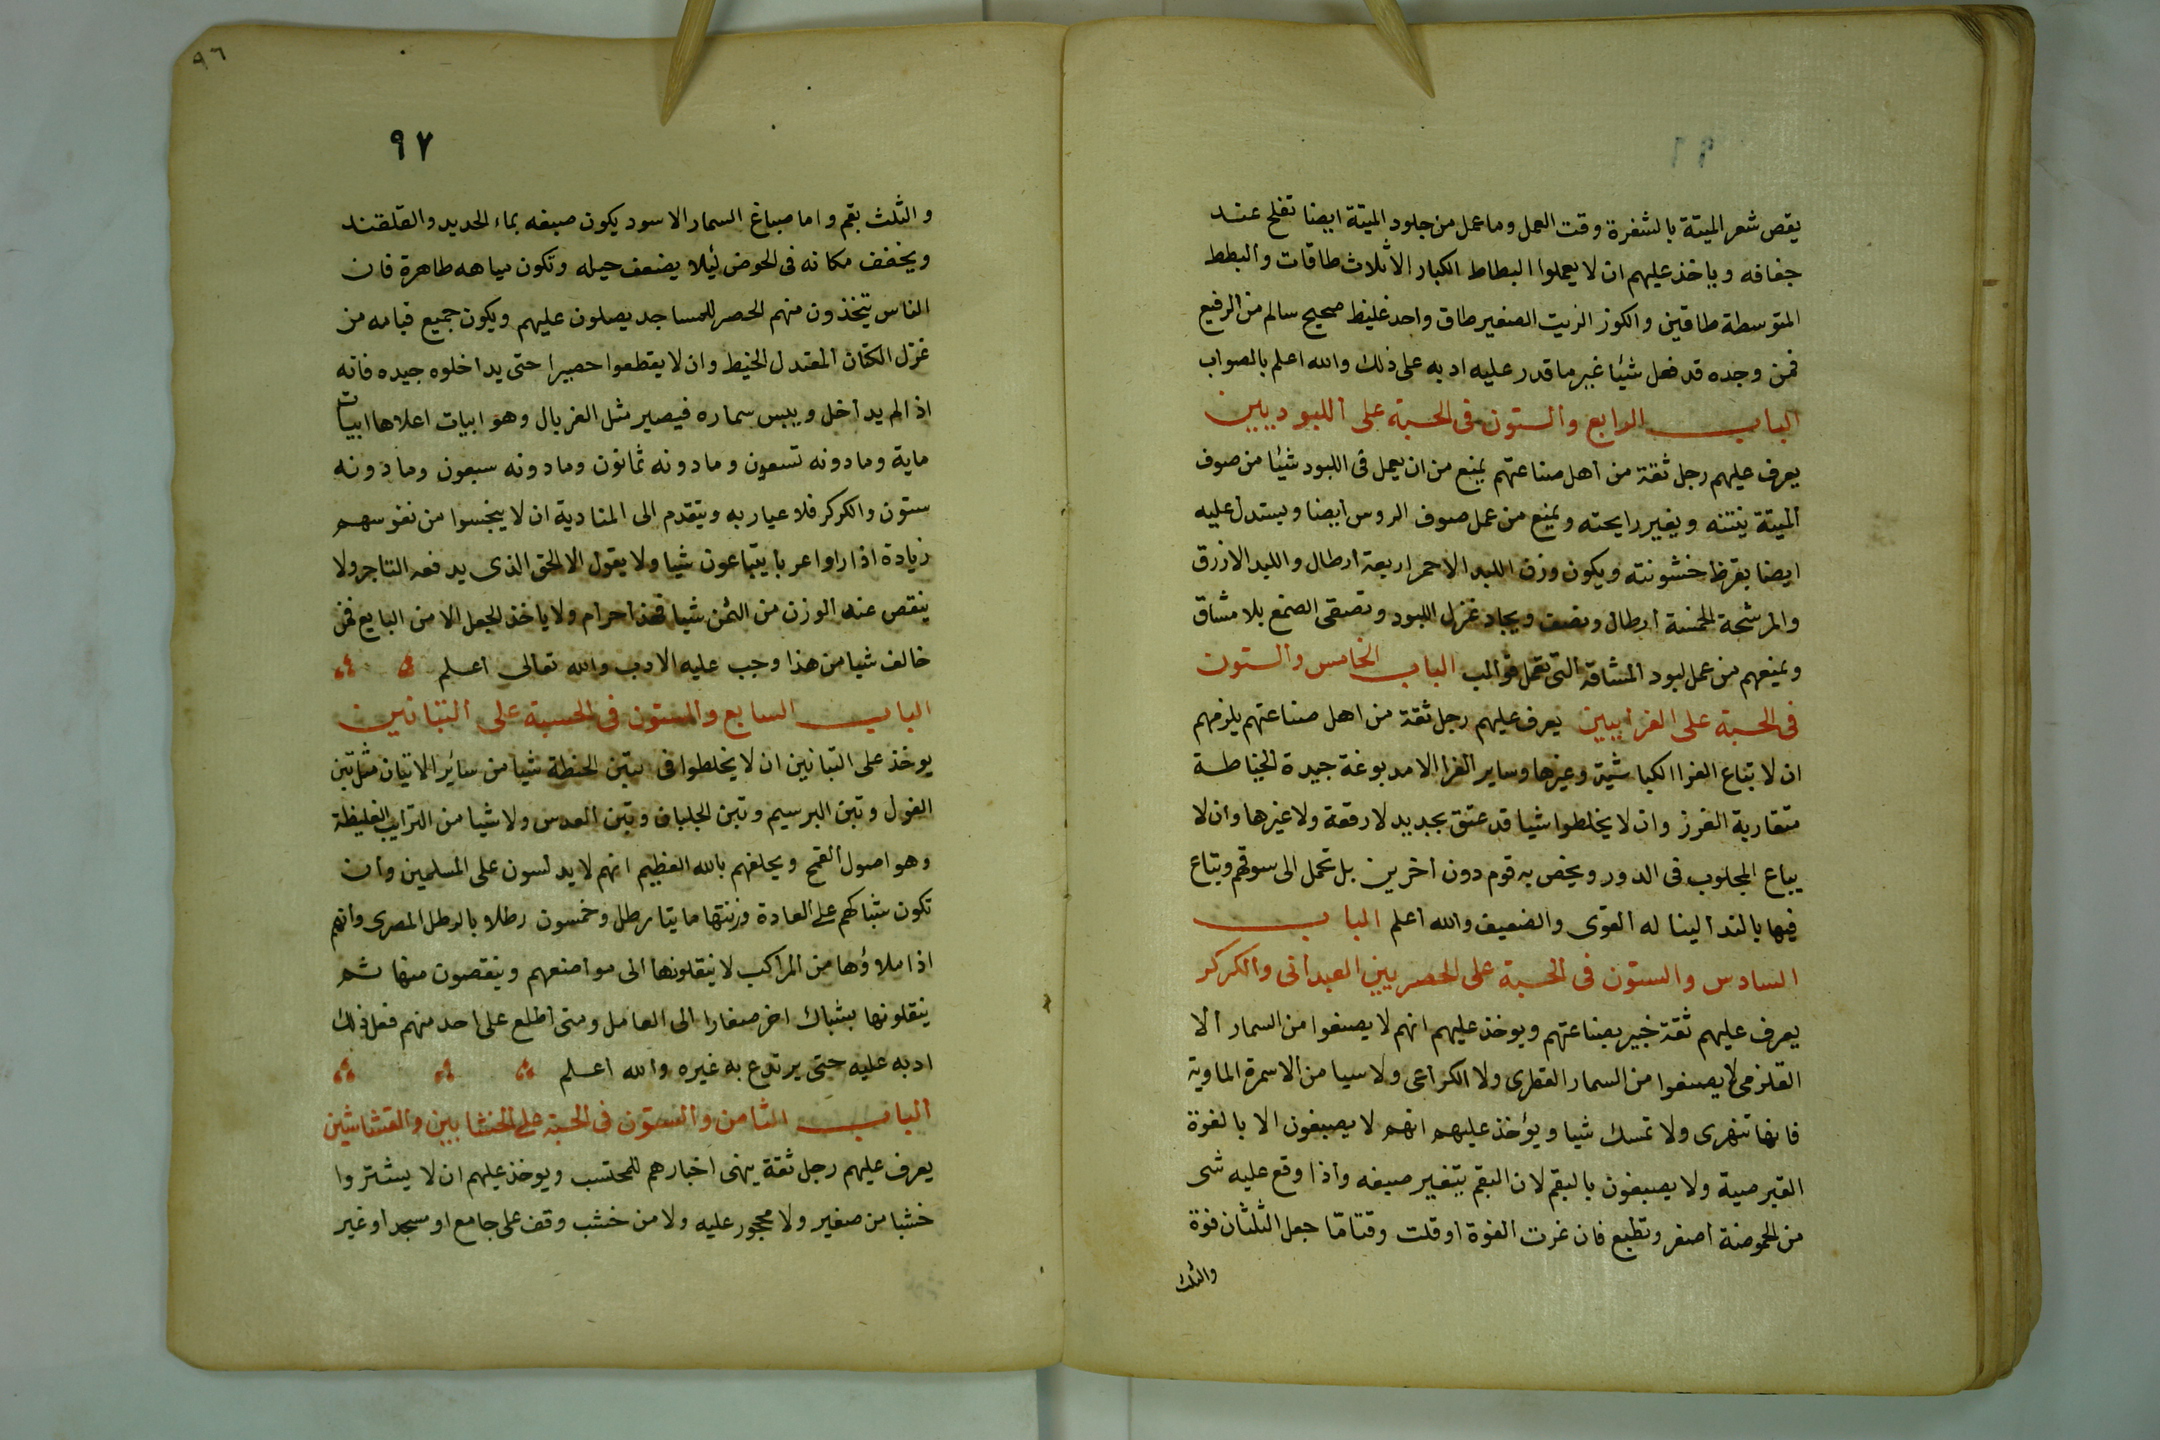 يقص شعر الميتة بالشفرة وقت العمل وما عمل من جلود الميتة ايضا تفلح عند
جفافه وياخذ عليهم ان لا يعملوا البطاط الكبار الا ثلاث طاقات والبطط
المتوسطة طاقين والكوز الزيت الصغير طاق واحد غليظ صحيح سالم من الرفيع
فمن وجده قد فعل شيئا غير ما قدر عليه ادبه على ذلك والله اعلم بالصواب
الباب الرابع والستون فى الحسبة على اللبوديين
يعرف عليهم رجل ثقة من اهل صناعتهم يمنع من ان يعمل فى اللبود شيئا من صوف
الميتة ينتنه ويغير رايحته ويمنع من عمل صوف الروس ايضا ويستدل عليه
ايضا بفرط خشونته ويكون وزن اللبد الاحمر اربعة ارطال واللبد الازرق
والمرشحة الخمسة ارطال ونصف ويجاد غزل اللبود وتصقى الصمغ بلا مشاق
ويمنعهم من عمل لبود المشاقة التى تعمل قوالب الباب الخامس والستون
فى الحسبة على الفرايين يعرف عليهم رجل ثقة من اهل صناعتهم يلزمهم
ان لا تباع الفرا الكباشية وغيرها وساير الفرا الا مدبوغة جيدة الخياطة
متقاربة الغرز وان لا يخلطوا شيا قد عتق بجديد لا رقعة ولا غيرها وان لا
يباع المجلوب فى الدور ويخص به قوم دون اخرين بل تحمل الى سوقهم وتباع
فيها بالندا لينا له القوى والضعيف والله اعلم الباب
السادس والستون فى الحسبة على الحصريين العبدانى والكركر
يعرف عليهم ثقة خبير بصناعتهم ويوخذ عليهم انهم لا يصنعوا من السمار الا
القلزمى لا يصنعوا من السمار القطرى ولا الكراعى ولا سيا من الاسمرة الماوية
فانها تنهرى ولا تمسك شيا ويؤخذ عليهم انهم لا يصبغون الا بالفوة
القبرصية ولا يصبغون بالبقم لان البقم يتغير صبغه واذا وقع عليه شى
من الحموضة اصفر وتطبع فان عزت الفوة او قلت وقتا مّا جعل الثلثان فوة
والثلث
٩٦
٩٧
والثلث بقم واما صباغ السمار الاسود يكون صبغه بماء الحديد والقلقند
ويخفف مكانه فى الحوض ليئلا يضعف حيله وتكون مياهه طاهرة فان
الناس يتخذون منهم الحصر للمساجد يصلون عليهم ويكون جميع قيامه من
غزل الكتان المعتدل الخيط وان لا يقطعوا حصيرا حتى يداخلوه جيده فانه
اذا لم يداخل ويبس سماره فيصير مثل الغربال وهو ابيات اعلاها ابيات
ماية ومادونه تسعون ومادونه ثمانون ومادونه سبعون ومادونه
ستون والكركر فلا عيار به ويتقدم الى المنادية ان لا ينجسوا من نفوسهم
زيادة اذا راوا عربا يتباعون شيا ولا يقول الا الحق الذى يدفعه التاجر ولا
ينقص عند الوزن من الثمن شيا فهذا حرام ولا ياخذ الجعل الا من البايع فمن
خالف شيا من هذا وجب عليه الادب والله تعالى اعلم
الباب السابع والستون فى الحسبة على التبانين
يوخذ على التبانين ان لا يخلطوا فى تبن الحنطة شيا من سائر الاتبان مثل تبن
الفول وتبن البرسيم وتبن الجلبان وتبن العدس ولا شيا من الترايب الغليظة
وهو اصول القمح ويحلفهم بالله العظيم انهم لا يدلسون على المسلمين وان
تكون شباكهم على العادة وزنتها مايتا رطل وخمسون رطلا بالرطل المصرى وانهم
اذا ملاؤها من المراكب لا ينقلونها الى مواضعهم وينقصون منها ثم
ينقلونها بشباك اخر صغارا الى العامل ومتى اطلع على احد منهم فعل ذلك
ادبه عليه حتى يرتدع به غيره والله اعلم
الباب الثامن والستون فى الحسبة على الخشابين والقشاشين
يعرف عليهم رجل ثقة ينهى اخبارهم للمحتسب ويوخذ عليهم ان لا يشتروا
خشبا من صغير ولا محجور عليه ولا من خشب وقف على جامع او مسجد او غير